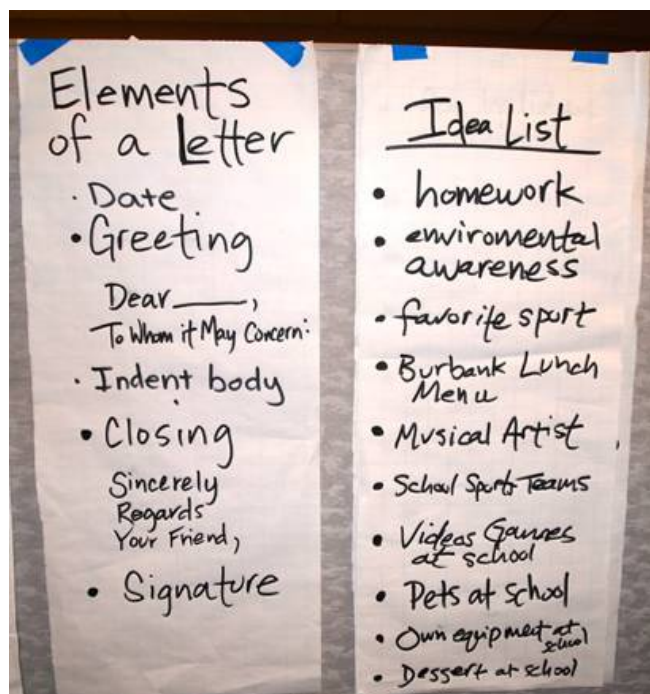 Elements
of a Letter
· Date
• Greeting
Dear ______,
To Whom it May Concern:
· Indent body
• Closing
Sincerely
Regards
Your Friend,
• Signature
Idea List
• homework
• enviromental
awareness
• favorite sport
• Burbank Lunch
Menu
• Musical Artist
• School Sports Teams
• Videos Games
at school
• Pets at school
• Own equipment at
school
• Dessert at school